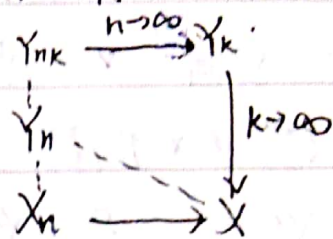 n→∞
Ynk → Yk
k→∞
Yn
Xn → X